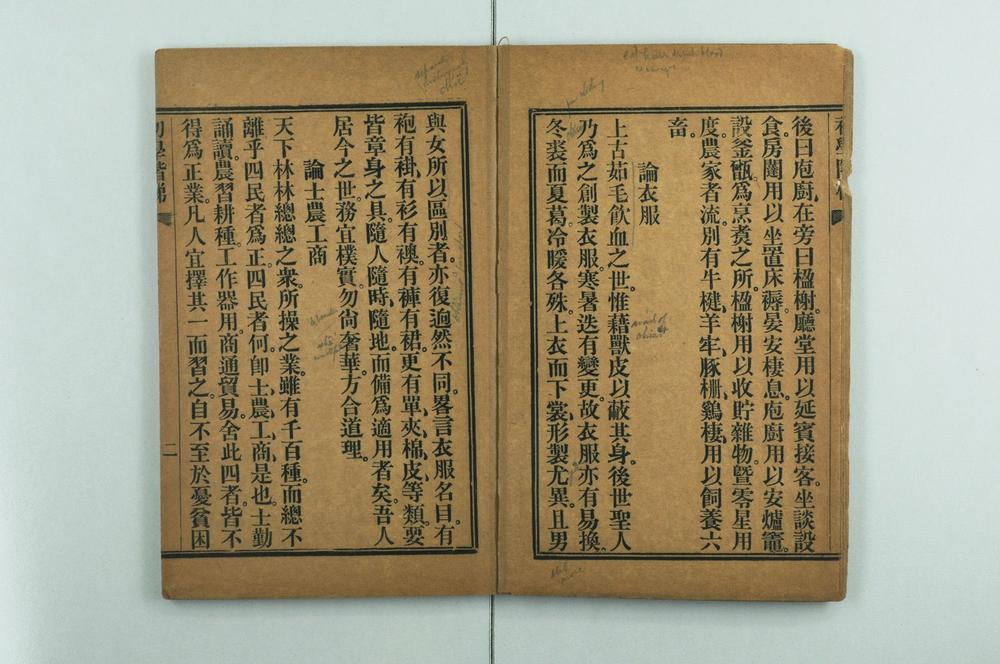 後曰庖廚、在旁曰楹榭。廳堂用以延賓接客。坐談設
食。房闥用以坐置床褥。晏安棲息。庖廚用以安爐竈。
設釜甑為烹煑之所。楹榭用以收貯雜物。曁零星用
度。農家者流。別有牛楗、羊牢、豚柵、鷄棲、用以飼養六
畜。
論衣服
上古茹毛飲血之世。惟藉獸皮以蔽其身。後世聖人
乃為之創製衣服。寒暑迭有變更。故衣服亦有易換。
冬裘而夏葛。冷暖各殊。上衣而下裳。形製尤異。且男
與女所以區別者。亦復逈然不同。畧言衣服名目。有
袍有褂、有衫有襖。有褲有裙。更有單、夾、棉、皮等類。要
皆章身之具。隨人隨時、隨地而備為適用者矣。吾人
居今之世。務宜樸實。勿尚奢華。方合道理。
論士農工商
天下林林總總之衆。所操之業。雖有千百種。而總不
離乎四民者為正。四民者何。卽士、農、工、商是也。士勤
誦讀。農習耕種。工作器用。商通貿易。舍此四者。皆不
得為正業。凡人宜擇其一而習之。自不至於憂貧困
初學階梯
二